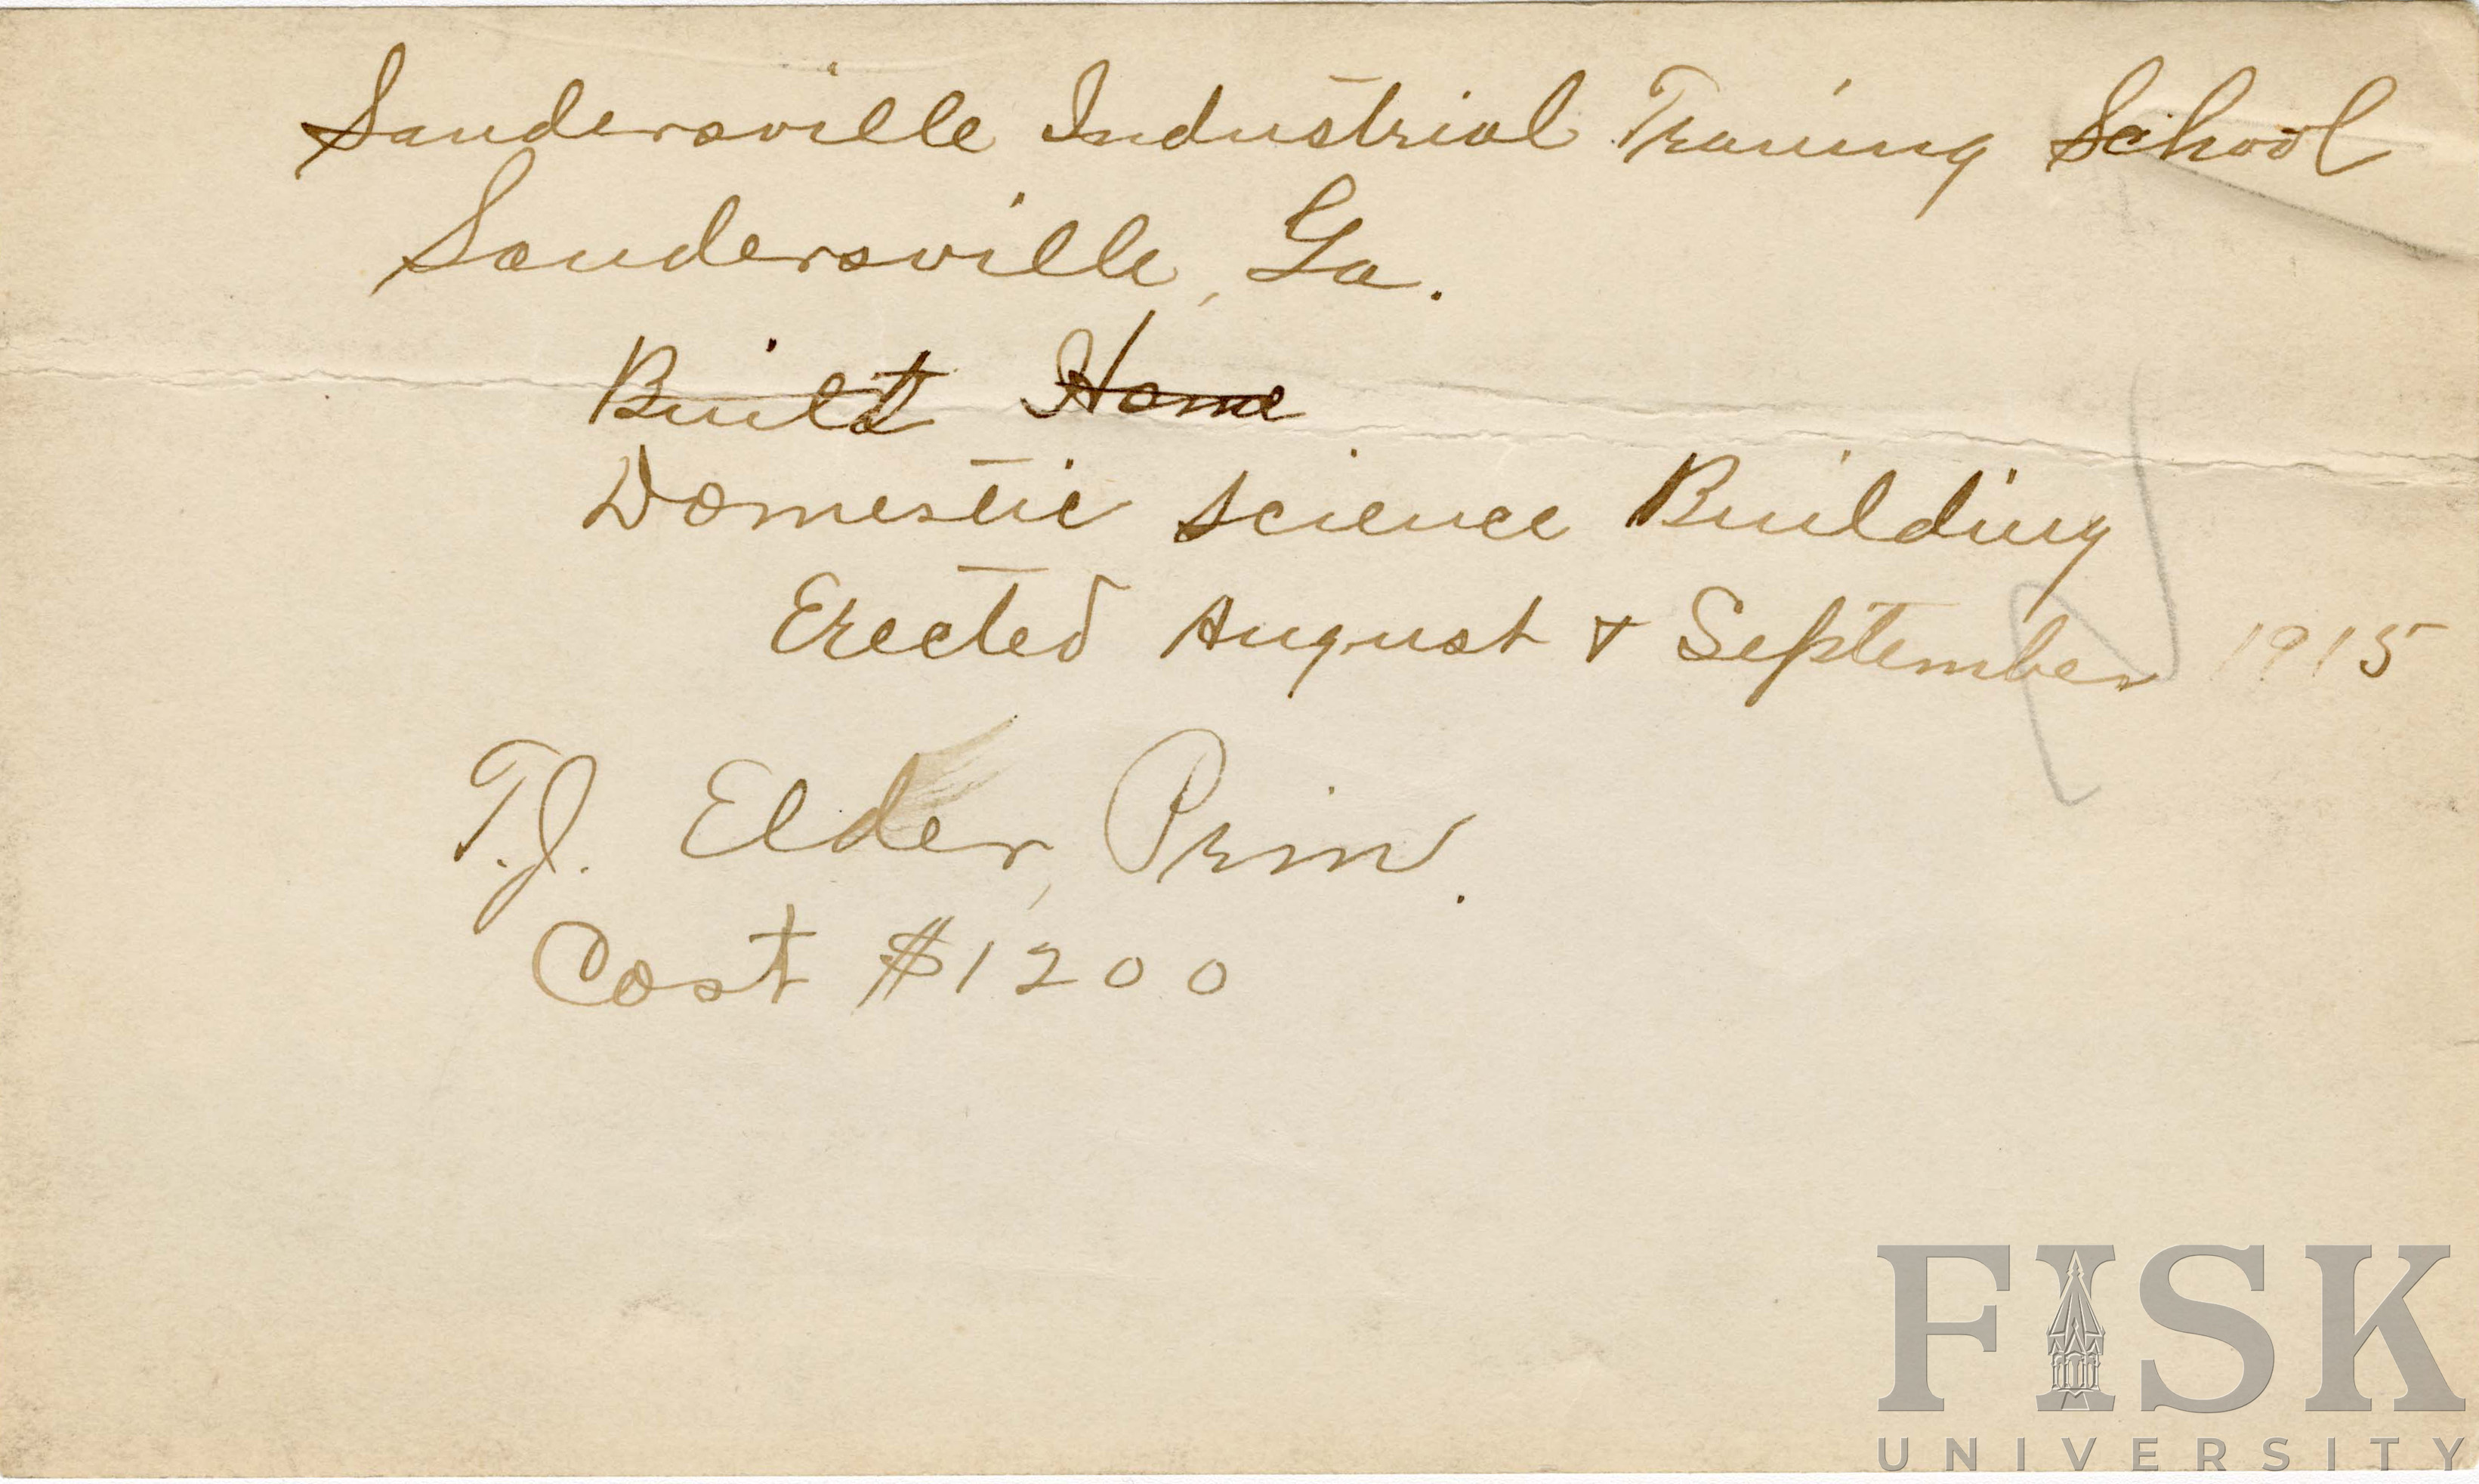 Sandersville Industrial Training School
Sandersville, Ga.
Built Home
Domestic Science Building
Erected August & September 1915
T.J. Elder, Prin.
Cost $1200
FISK
UNIVERSITY